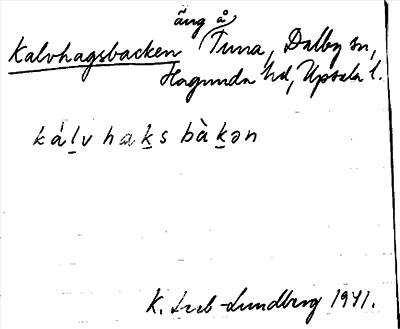 äng å
Kalvhagsbacken Tuna, Dalby sn,
Hagunda hd, Upsala l.
kálv haks bàkən
K. Lundberg 1941.